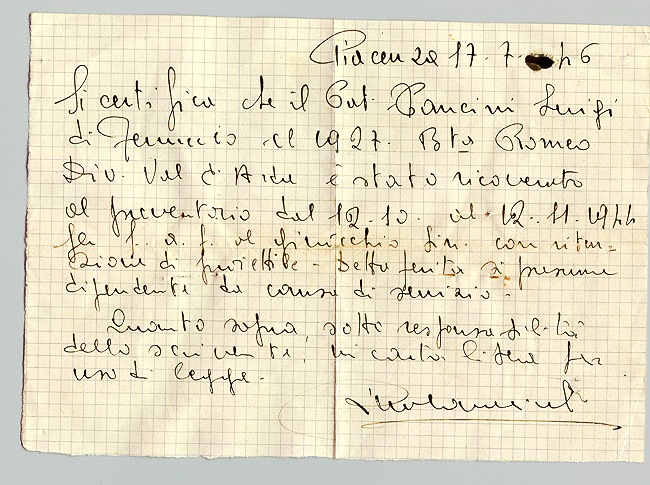 Piacenza 17.7.46
Si certifica che il Pat. Pancini Luigi
di Ferruccio cl 1927. Bta Romeo
Div. Val d'Arda è stato ricoverato
al preventorio dal 12.10. al 12.11.1944
per f. a. f. al ginocchio sin. con riten=
zione di proiettile - Detta ferita si presume
dipendente da causa di servizio -
Quanto sopra, sotto responsabilità
dello scrivente, in carta libera per
uso di legge.